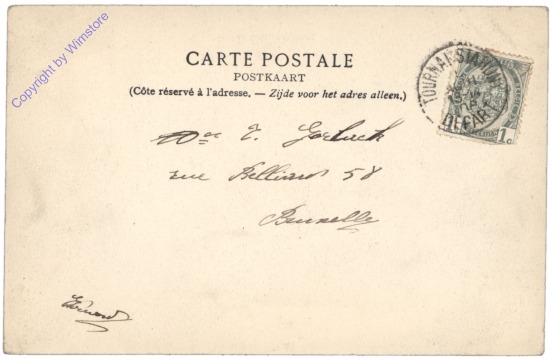 CARTE POSTALE
POSTKAART
(Côte réservé à l'adresse. — Zijde voor het adres alleen.)
TOURNAI STATION
DEPART
1c
E. Gerlach
rue Belliard 58
Bruxelles
Edouard
Copyright by Wimstore